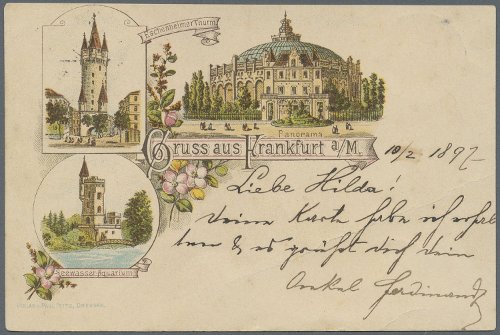 Eschenheimer Thurm
Panorama
Gruss aus Frankfurt a/M.
10/2 1897
Liebe Hilda!
Deine Karte habe ich erhal
ten & es grüßt dich dein
Onkel Ferdinand
Seewasser-Aquarium